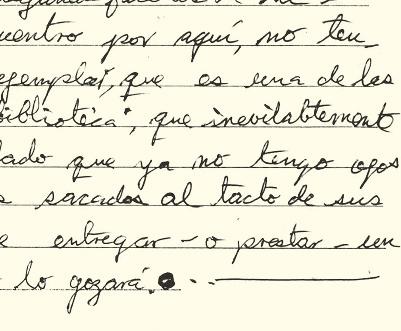 uentro por aquí, no ten_
ejemplar, que es una de las
biblioteca", que inevitablemente
lado que ya no tengo ojos
s sacados al tacto de sus
e entregar - o prestar - un
lo gozará. . . ————